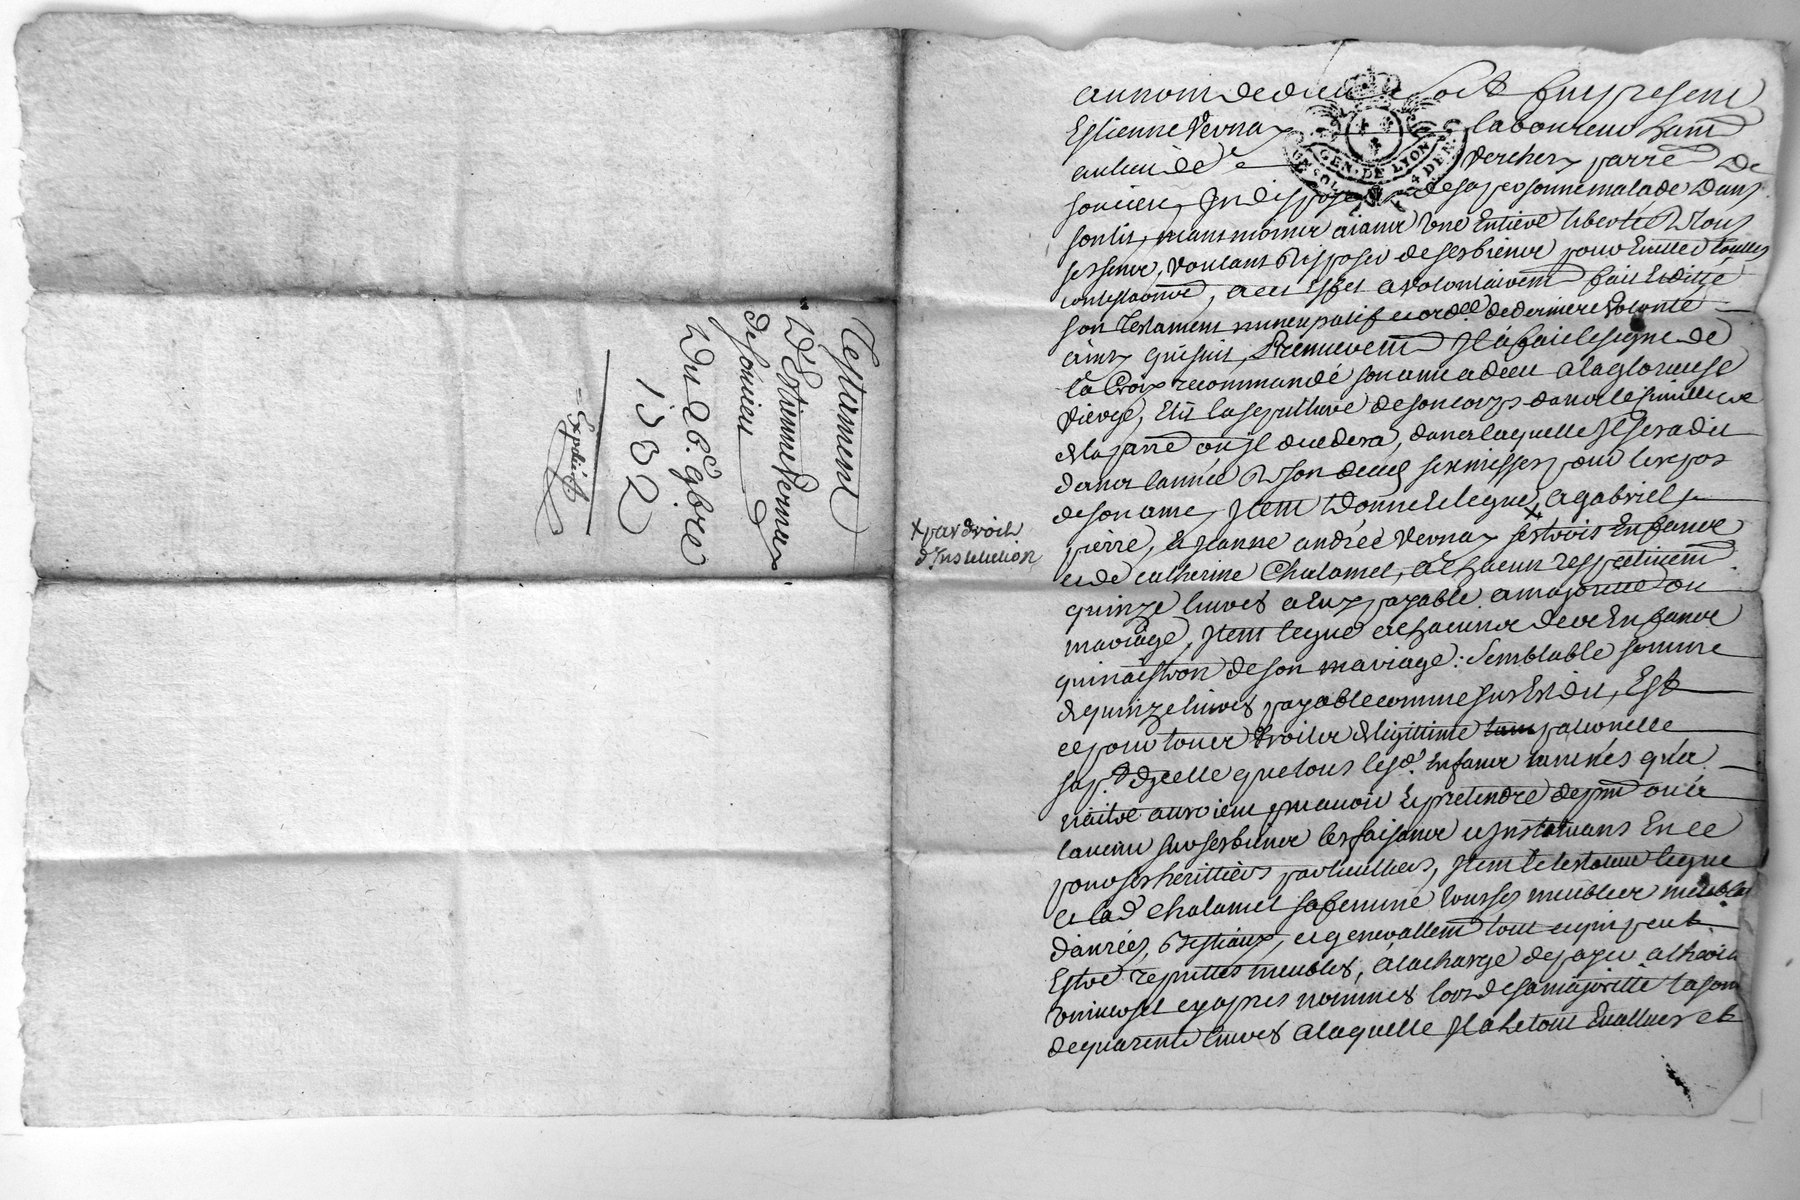 Testament
D'Estienne Vernay
de soucieu
Du 26.e 9bre
1732
Expedié
au nom de dieu soit fut present
Estienne Vernay laboureur habit
au lieu de verchery parre de
soucieu, Indisposé de sa personne malade dans
son lit, neanmoins aiant une Entiere liberté de tous
ses sens, voulant disposer de ses biens pour Eviter touttes
contestaons, a cet effet a volontairemt fait Et dicté
son Testament nuncupatif et ordce de derniere volonté
ainsy quesuit, Premierement Il a fait le signe de
la Croix recommandé son ame a dieu a la glorieuse
vierge, Elit la sepulture de son corps dans le simittiere
de la parre ou Il decedera, dans laquelle Il sera dit
dans lannée de son deces six messes pour le repos
de son ame, Item donne Et legue x a gabriel,
x par droit
d'Institution
pierre, & Jeanne andrée Vernay ses trois Enfans
et de catherine Chalamel, a chacun respectivemt
quinze livres a Eux payable a majorité ou
mariage, Item legue a chacuns de ses Enfans
qui naistron de son mariage semblable somme
de quinze livres payable comme sus Est dit, Est
ce pour tous droits de legittime paternelle
sup.t d'ycelle que tous lesd. Enfans tant nés qu'a
naitre auroient pu avoir & pretendre de pnt ou a
lavenir sur ses biens les faisant et Instituans En ce
pour ses herittiers particulliers, Item le testateur legue
a lad. Chalamel sa femme tous ses meubles meublans
danrées, bestiaux, et generallemt tout ce qui peut
Estre reputtés meubles, a la charge de payer a lheritier
universel cy apres nommés lors de sa majorité la som
de quarente livres a laquelle Il a le tout Evalluer et
GEN. DE LYON
UN SOL 4 DEN.